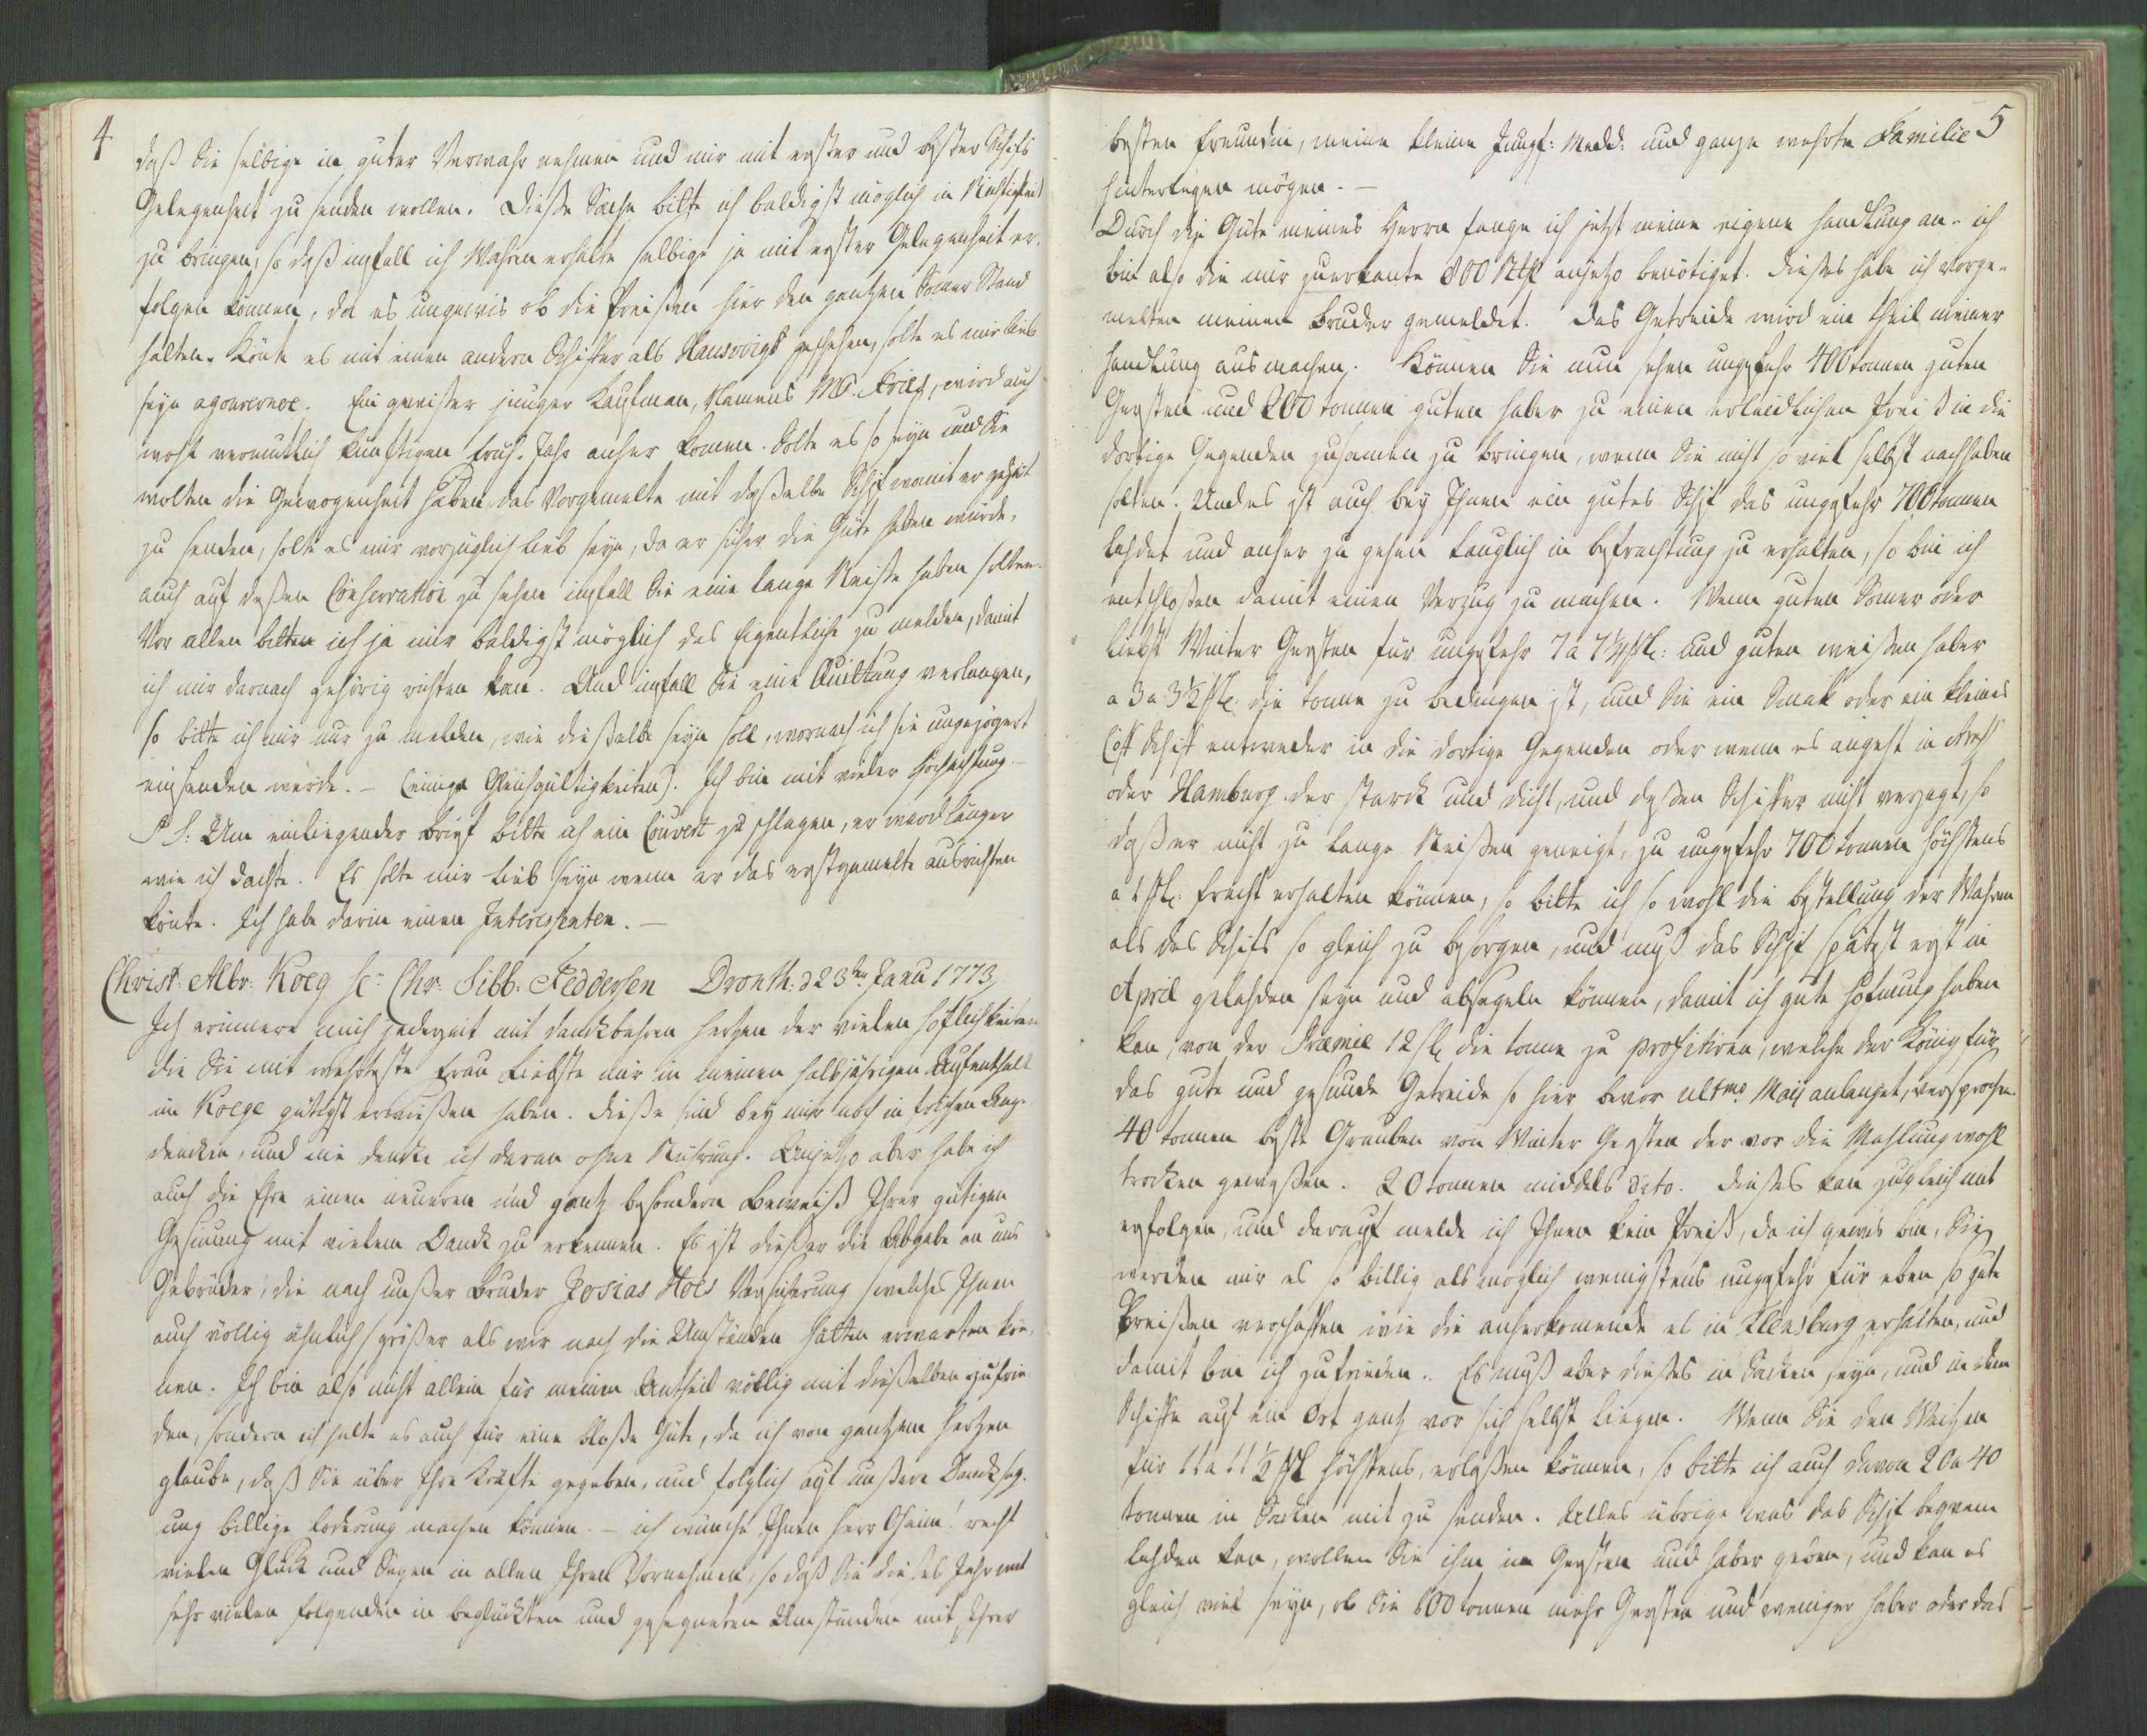 4
daß Sie selbige in guter Verwahr nehmen und mir mit erster und bester Schifs
Gelegenheit zu senden wollen. Dieße Sache bitte ich baldigst möglich in Richtigkeit
zu bringen, so daß inffall ich Wahren erhalte selbige ja mit erster Gelegenheit er-
folgen können, da es ungewis ob die Preißen hier den gantzen Somer Stand
halten. Könte es mit einen andern Schiffer als Hansvigs geschehen, solte es mir lieb
seyn agouvernor. Ein gewißer junger Kaufman, Namens Mr. Friis, wird auch
wohl vermutlich künftigen Früh-Jahr anher komen. Solte es so seyn und Sie
wolten die Gewogenheit haben das Vorgemelte mit daßelbe Schif womit er gehet
zu senden, solte es mir vorzüglich lieb seyn, da er sicher die Güte haben würde,
auch auf deßen Conservation zu sehen inffall Sie eine lange Reiße haben solten.
Vor allen bitten ich ja mir baldigst möglich das Eigentliche zu melden, damit
ich mir darnach gehörig richten kan. Und inffall Sie eine Quittung verlangen,
so bitte ich mir nur zu melden, wie dießelbe seyn soll, wornach ich sie ungezögert
einsenden werde. – (einige Gleichgültigkeiten). Ich bin mit vieler Hochachtung. –
P S: Um einliegender Brief bitte ich ein Couvert zu schlagen, er ward länger
wie ich dachte. Es solte mir lieb seyn wenn er das erstgemelte ausrichten
könte. Ich habe darin einen Interessenten. –
Christ: Albr: Koeg Hr Chr: Sibb: Feddersen Dronth: d 23ten Janu 1773
Ich erinnere mich jederzeit mit danckbahren Hertzen der vielen Höflichkeiten
die Sie mit wehrteste Frau Liebste mir in meinen halbjährigen Aufenthalt
in Koege gütigst erwießen haben. Dieße sind bey mir noch in frischen Ange-
dencken, und nie dencke ich daran ohne Rührung. Anjetzo aber habe ich
auch die Ehre einen neueren und gantz besondern Beweiß Ihrer gütigen
Gesinung mit vielem Danck zu erkennen. Es ist dießer die Abgabe an uns
Gebrüder, die nach unßer Bruder Josias Hoes Versicherung (welches Ihnen
auch völlig ähnlich) größer als wir nach die Umständen hätten erwarten kön-
nen. Ich bin also nicht allein für meinen Antheil völlig mit dießelben zufrie
den, sondern ich halte es auch für eine bloße Güte, da ich von gantzem Hertzen
glaube, daß Sie über Ihre Kräfte gegeben, und folglich auf unßere Dancksag-
ung billige Foderung machen können. – ich wünsche Ihnen Herr Oheim! recht
vielen Glück und Segen in allen Ihren Vornehmen, so daß Sie dießes Jahr mit
sehr vielen folgenden in beglückten und gesegneten Umständen mit Ihrer
5
besten Freundin, meine kleine Jungf: Medd: und ganze wehrte Familie
hinterlegen mögen. –
Durch die Güte meines Herrn fange ich jetzt meine eigene Handlung an. ich
bin also die mir zuerkante 800 Rthl anjetzo benötiget. Dießes habe ich vorge-
melten meinen Bruder gemeldet. Das Getreide wird ein theil meiner
Handlung ausmachen. Können Sie nun sehen ungefehr 400 tonnen guten
Gersten und 200 tonnen guten Haber zu einen erleidlichen Preiß in die
dortige Gegenden zusamen zu bringen, wenn Sie nicht so viel selbst nachhaben
solten. Und es ist auch bey Ihnen ein gutes Schif das ungefehr 700 tonnen
lahdet und anher zu gehen tauglich in befrachtung zu erhalten, so bin ich
entschloßen damit einen Verzug zu machen. Wenn guten Somer oder
liebst Winter Gersten für ungefehr 7 a 7¼ ßl: und guten weißen Haber
a 3 a 3½ ßl die tonne zu bedingen ist, und Sie ein Smak oder ein kleines
Coff Schiff entweder in die dortige Gegenden oder wenn es angeht in Arrh
oder Hamburg der starck und dicht, und deßen Schiffer nicht verzagt, so
daß er nicht zu lange Reißen geneigt, zu ungefehr 700 tonnen höchstens
a 1 ßl: fracht erhalten können, so bitte ich so wohl die bestellung der Wahren
als des Schifs so gleich zu besorgen, und muß das Schif spätest erst in
April gelahden seyn und absegeln können, damit ich gute Hofnung haben
kan, von der Præmie 12 ßl die tonne zu profitiren, welche der König für
das gute und gesunde Getreide so hier bevor ultmo Maij anlanget, versprochen.
40 tonnen beste Grauben von Winter Gersten der vor die Mahlung wohl
trocken geweßen. 20 tonnen middels dito. Dießes kan zugleich mit
erfolgen, und darauf melde ich Ihnen kein Preiß, da ich gewis bin, Sie
werden mir es so billig als möglich wenigstens ungefehr für eben so gute
Preißen verschaffen wie die anherkomende es in Flensburg erhalten, und
damit bin ich zufrieden. Es muß aber dießes in Säcken seyn, und in dem
Schiffe auf ein Ort gantz vor sich selbst liegen. Wenn Sie den Weitzen
für 11 a 11½ ßl höchstens, erlaßen können, so bitte ich auch davon 20 a 40
tonnen in Säcken mit zu senden. Alles übrige was das Schif beqvem
lahden kan, wollen Sie ihm in Gersten und Haber geben, und kan es
gleich viel seyn, ob Sie 100 tonnen mehr Gersten und weniger Haber oder das